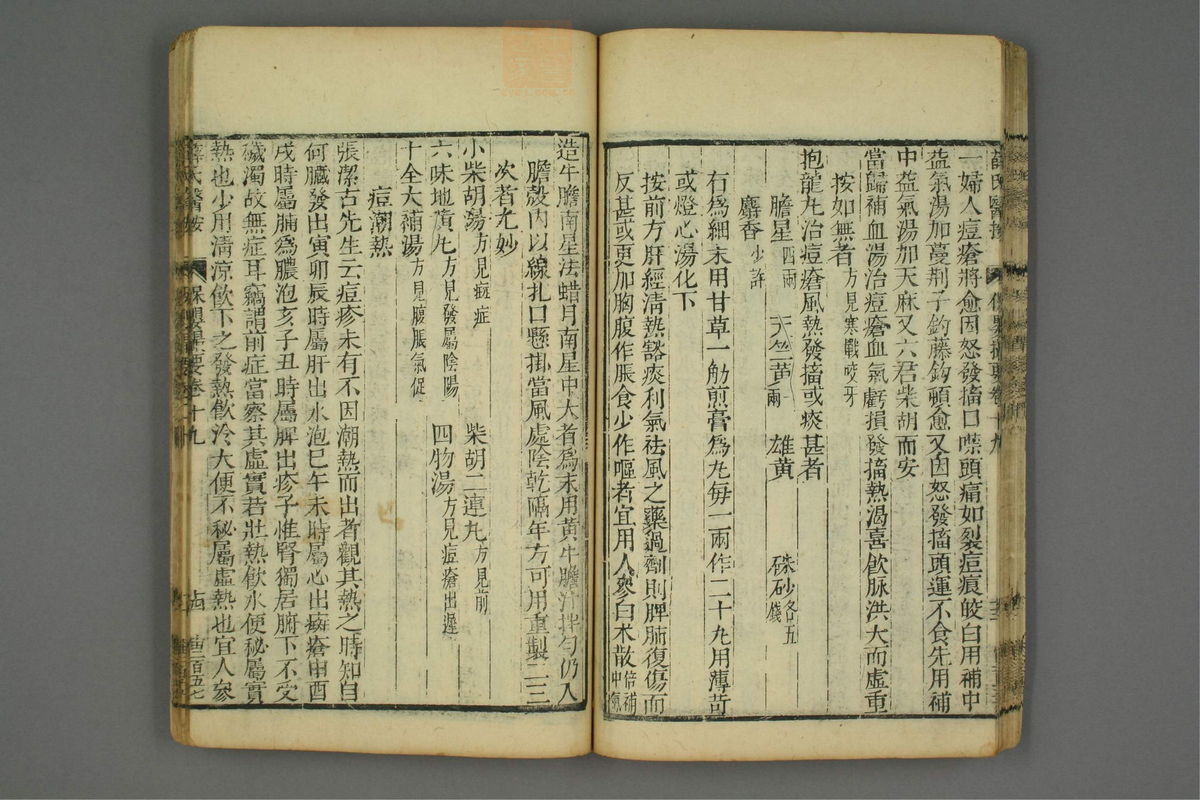 一婦人痘瘡將愈因怒發搐口噤頭痛如裂痘痕皎白用補中
益氣湯加蔓荆子釣藤鈎頓愈又因怒發搐頭運不食先用補
中益氣湯加天麻又六君柴胡而安
當歸補血湯治痘瘡血氣虧損發搐熱渴喜飲脉洪大而虛重
按如無者方見寒戰咬牙
抱龍丸治痘瘡風熱發搐或痰甚者
膽星四兩 天竺黃一兩 雄黃 硃砂各五錢
麝香少許
右爲細末用甘草一觔煎膏爲丸每一兩作二十丸用薄荷
或燈心湯化下
按前方肝經清熱豁痰利氣祛風之藥過劑則脾肺復傷而
反甚或更加胸腹作脹食少作嘔者宜用人參白术散倍補中氣
造牛膽南星法蜡月南星中大者爲末用黃牛膽汁拌勻仍入
膽殼内以線扎口懸掛當風處陰乾隔年方可用重製二三
次者尤妙
小柴胡湯方見癍症 柴胡二連丸方見前
六味地黃丸方見發屬陰陽 四物湯方見痘瘡出遲
十全大補湯方見腹脹氣促
痘潮熱
張潔古先生云痘疹未有不因潮熱而出者觀其熱之時知自
何臟發出寅卯辰時屬肝出水泡巳午未時屬心出癍瘡申酉
戌時屬肺爲膿泡亥子丑時屬脾出疹子惟腎獨居腑下不受
穢濁故無症耳竊謂前症當察其虛實若壯熱飲水便秘屬實
熱也少用清涼飲下之發熱飲冷大便不秘屬虛熱也宜人參
薛氏醫按 保嬰撮要卷十九